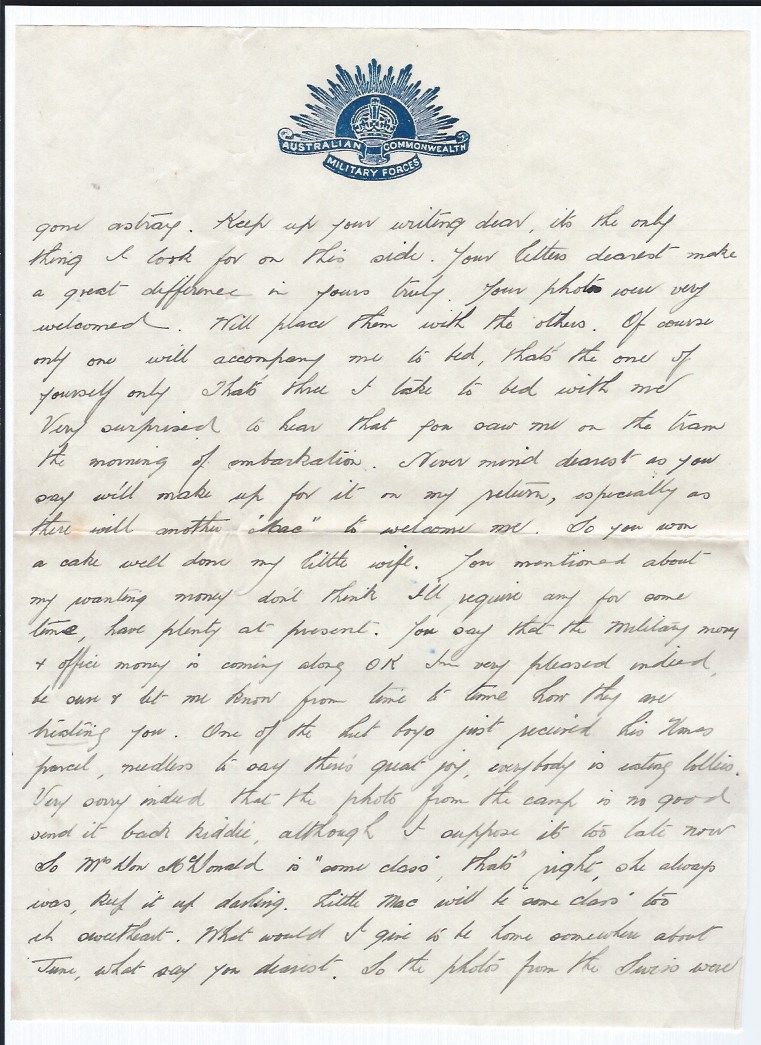 AUSTRALIAN COMMONWEALTH
MILITARY FORCES
gone astray. Keep up your writing dear, its the only
thing I look for on this side. Your letters dearest make
a great difference in yours truly. Your photos were very
welcomed. Will place them with the others. Of course
only one will accompany me to bed, that's the one of
yourself only That's three I take to bed with me
Very surprised to hear that you saw me on the tram
the morning of embarkation. Never mind dearest as you
say we'll make up for it on my return, especially as
there will another "Mac" to welcome me. So you won
a cake well done my little wife. You mentioned about
my wanting money don't think I'll require any for some
time, have plenty at present. You say that the Military money
& office money is coming along OK Im very pleased indeed,
be sure & let me know from time to time how they are
treating you. One of the hut boys just received his Xmas
parcel, needless to say there's great joy, everybody is eating lollies.
Very sorry indeed that the photo from the camp is no good
send it back kiddie, although I suppose it too late now
So Mrs Don McDonald is "some class", thats right, she always
was, keep it up darling. Little Mac will be some class too
eh sweetheart. What would I give to be home somewhere about
June, what say you dearest. So the photos from the Swiss were